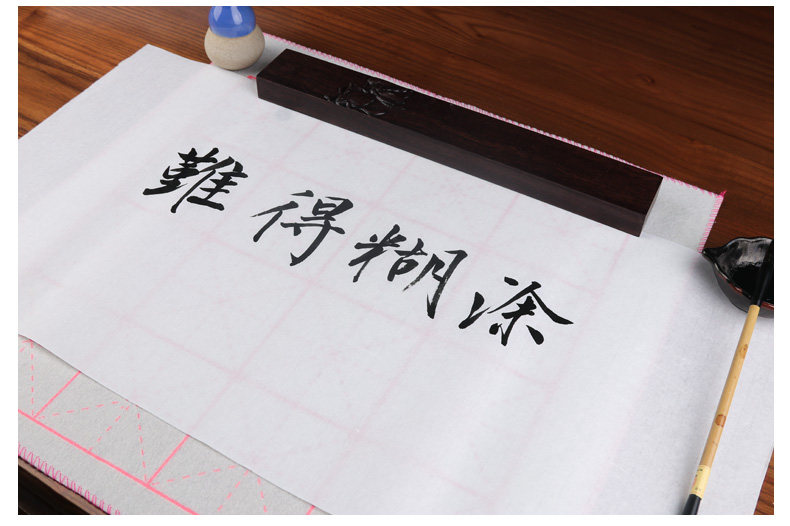 難得糊涂